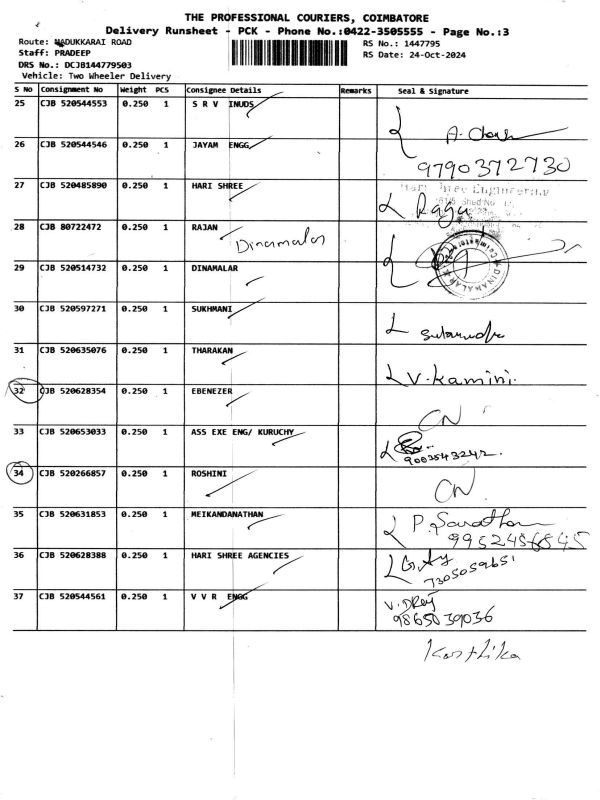 THE PROFESSIONAL COURIERS, COIMBATORE
Delivery Runsheet - PCK - Phone No.:0422-3505555 - Page No.:3
Route: MADUKKARAI ROAD
RS No.: 1447795
Staff: PRADEEP
RS Date: 24-Oct-2024
DRS No.: DCJB144779503
Vehicle: Two Wheeler Delivery
S No Consignment No Weight PCS Consignee Details Remarks Seal & Signature
25 CJB 520544553 0.250 1 S R V INUDS
26 CJB 520544546 0.250 1 JAYAM ENGG
9790372730
27 CJB 520485890 0.250 1 HARI SHREE
Raja
28 CJB 80722472 0.250 1 RAJAN
Dinamalar
DINAMALAR
29 CJB 520514732 0.250 1 DINAMALAR
30 CJB 520597271 0.250 1 SUKHMANI
31 CJB 520635076 0.250 1 THARAKAN
V. Kamini.
32 CJB 520628354 0.250 1 EBENEZER
CN
33 CJB 520653033 0.250 1 ASS EXE ENG/ KURUCHY
9003543242.
34 CJB 520266857 0.250 1 ROSHINI
CN
35 CJB 520631853 0.250 1 MEIKANDANATHAN
36 CJB 520628388 0.250 1 HARI SHREE AGENCIES
7305059651
37 CJB 520544561 0.250 1 V V R ENGG
9865039036
Karthika